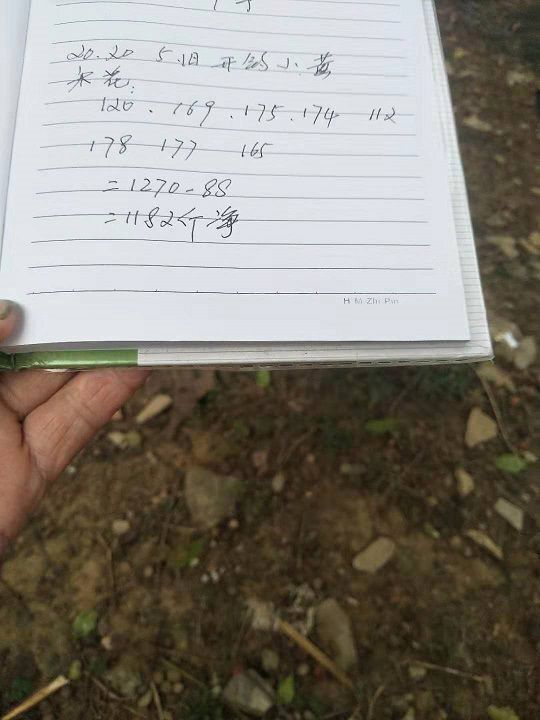 20.20 5旧开始小黄
米花:
120.169.175.174 112
178 177 165
=1270-88
=1182个海
H M Zhi Pin